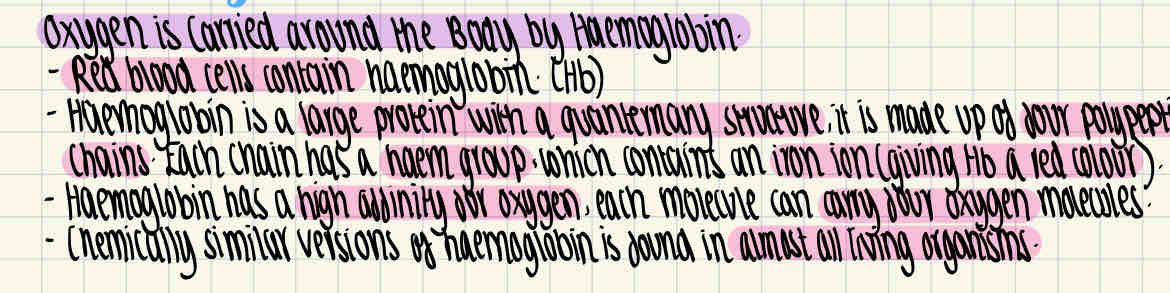 Oxygen is Carried around the Body by Haemoglobin.
- Red blood cells contain haemoglobin. (Hb)
- Haemoglobin is a large protein with a quanternary structure, it is made up of four polypepti
Chains. Each chain has a haem group, which contains an iron ion (giving Hb a red colour).
- Haemoglobin has a high affinity for oxygen, each molecule can carry four oxygen molecules.
- Chemically similar versions of haemoglobin is found in almost all living organisms.